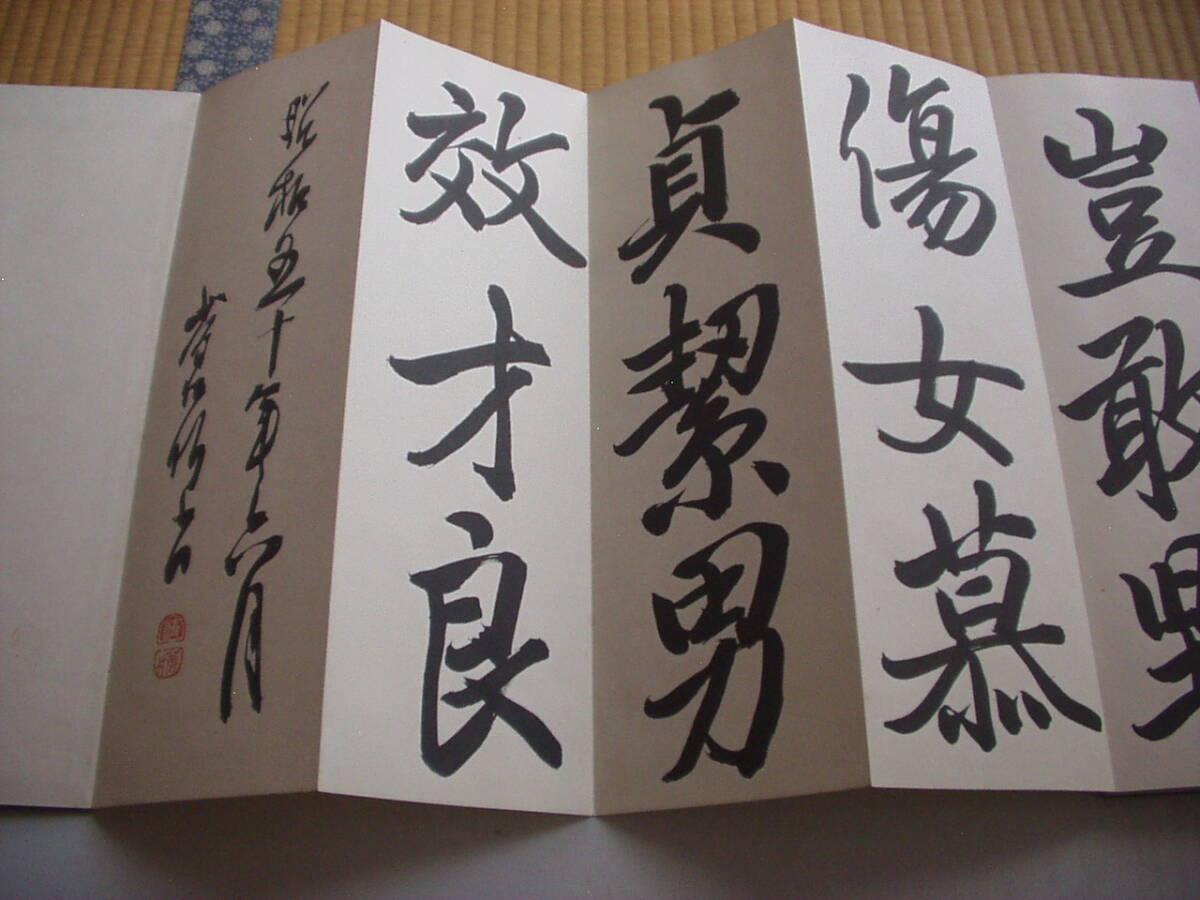 豈敢毀
傷女慕
貞絜男
效才良
昭和五十年六月